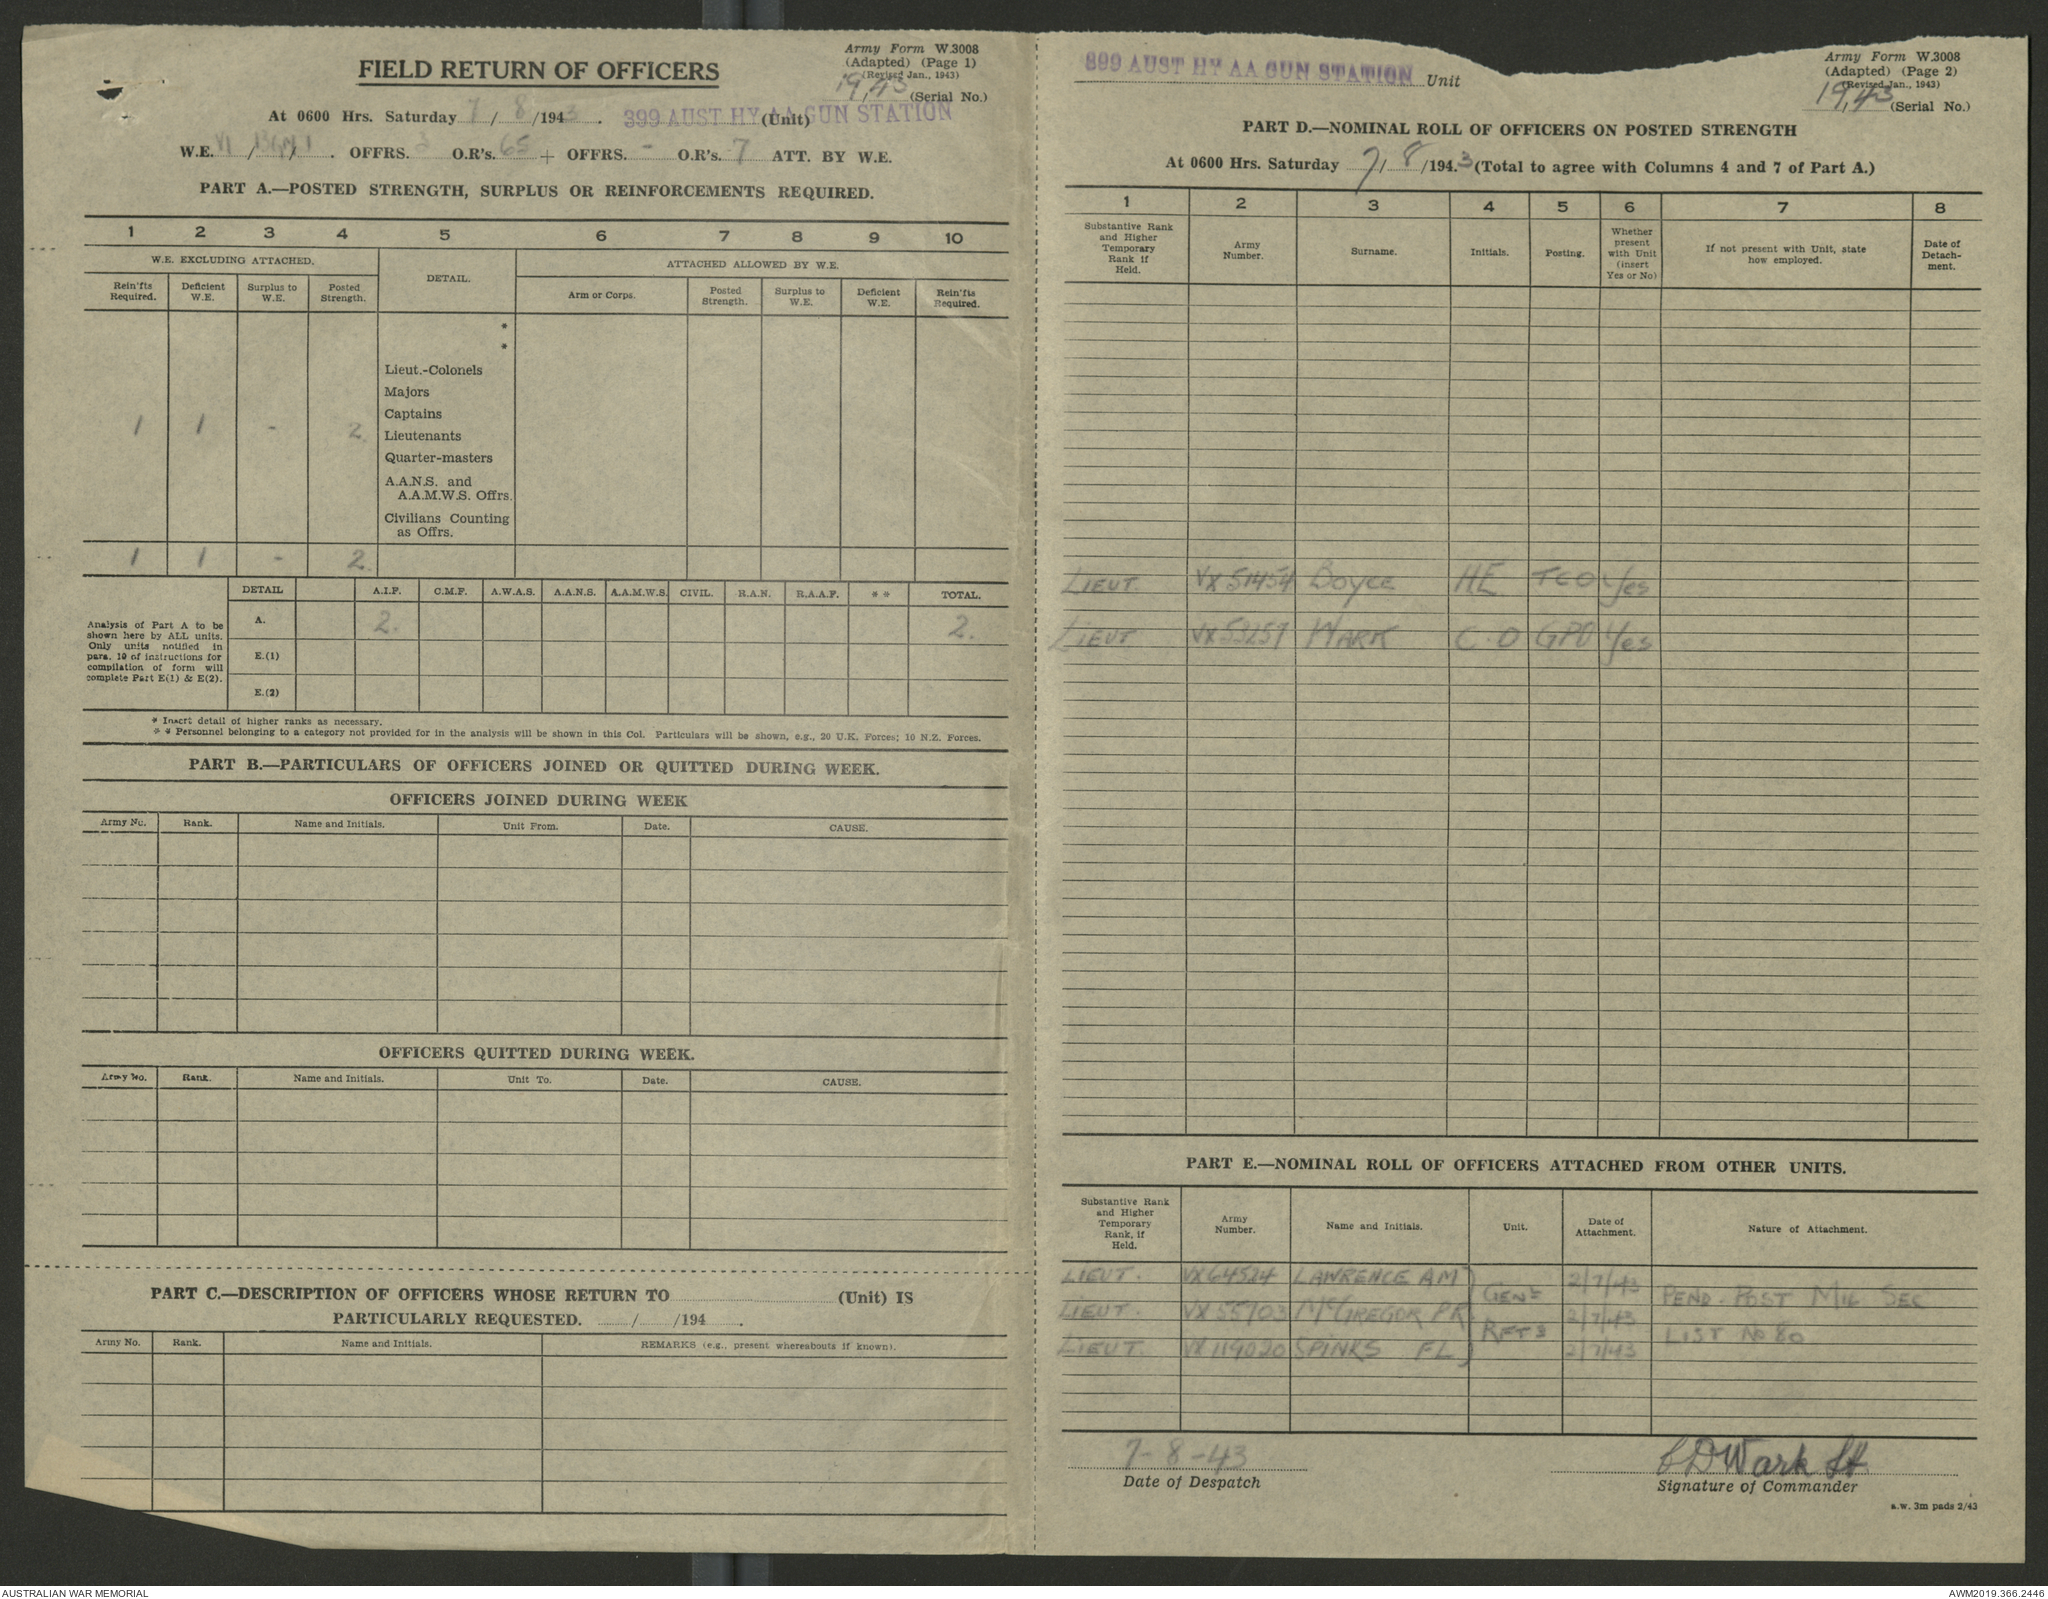 Army Form W.3008
(Adapted) (Page 1)
(Revised Jan., 1943)
19/43 (Serial No.)
FIELD RETURN OF OFFICERS
At 0600 Hrs. Saturday 7 / 8 /1943. 399 AUST HY AA GUN STATION (Unit)
W.E. VI / / . OFFRS. 3 O.R's. 65 + OFFRS. - O.R's. 7 ATT. BY W.E.
PART A.—POSTED STRENGTH, SURPLUS OR REINFORCEMENTS REQUIRED.
1 2 3 4 5 6 7 8 9 10
W.E. EXCLUDING ATTACHED. DETAIL. ATTACHED ALLOWED BY W.E.
Rein'fts Required. Deficient W.E. Surplus to W.E. Posted Strength. Arm or Corps. Posted Strength. Surplus to W.E. Deficient W.E. Rein'fts Required.
*
*
Lieut.-Colonels
Majors
Captains
1 1 - 2 Lieutenants
Quarter-masters
A.A.N.S. and
A.A.M.W.S. Offrs.
Civilians Counting
as Offrs.
1 1 - 2
DETAIL A.I.F. C.M.F. A.W.A.S. A.A.N.S. A.A.M.W.S. CIVIL. R.A.N. R.A.A.F. ** TOTAL.
Analysis of Part A to be
shown here by ALL units.
Only units notified in
para. 10 of instructions for
compilation of form will
complete Part E(1) & E(2).
A. 2. 2.
E.(1)
E.(2)
* Insert detail of higher ranks as necessary.
* * Personnel belonging to a category not provided for in the analysis will be shown in this Col. Particulars will be shown, e.g., 20 U.K. Forces; 10 N.Z. Forces.
PART B.—PARTICULARS OF OFFICERS JOINED OR QUITTED DURING WEEK.
OFFICERS JOINED DURING WEEK
Army No. Rank. Name and Initials. Unit From. Date. CAUSE.
OFFICERS QUITTED DURING WEEK.
Army No. Rank. Name and Initials. Unit To. Date. CAUSE.
PART C.—DESCRIPTION OF OFFICERS WHOSE RETURN TO (Unit) IS
PARTICULARLY REQUESTED. / /194 .
Army No. Rank. Name and Initials. REMARKS (e.g., present whereabouts if known).
399 AUST HY AA GUN STATION Unit
Army Form W.3008
(Adapted) (Page 2)
(Revised Jan., 1943)
19/43 (Serial No.)
PART D.—NOMINAL ROLL OF OFFICERS ON POSTED STRENGTH
At 0600 Hrs. Saturday 7/ 8 /194.3 (Total to agree with Columns 4 and 7 of Part A.)
1 2 3 4 5 6 7 8
Substantive Rank and Higher Temporary Rank if Held. Army Number. Surname. Initials. Posting. Whether present with Unit (insert Yes or No) If not present with Unit, state how employed. Date of Detachment.
LIEUT. VX51454 Boyce HE TCO Yes
LIEUT VX53257 WARK C.D GPO Yes
PART E.—NOMINAL ROLL OF OFFICERS ATTACHED FROM OTHER UNITS.
Substantive Rank and Higher Temporary Rank, if Held. Army Number. Name and Initials. Unit. Date of Attachment. Nature of Attachment.
LIEUT. VX64524 LAWRENCE AM GENL 2/7/43 PEND. POST MIL SEC
LIEUT. VX55703 McGREGOR PR RFTS 2/7/43 LIST No 80
LIEUT. VX119020 SPINKS FL 2/7/43
7-8-43
Date of Despatch
CDWark Lt
Signature of Commander
a.w. 3m pads 2/43
AUSTRALIAN WAR MEMORIAL
AWM2019.366.2446